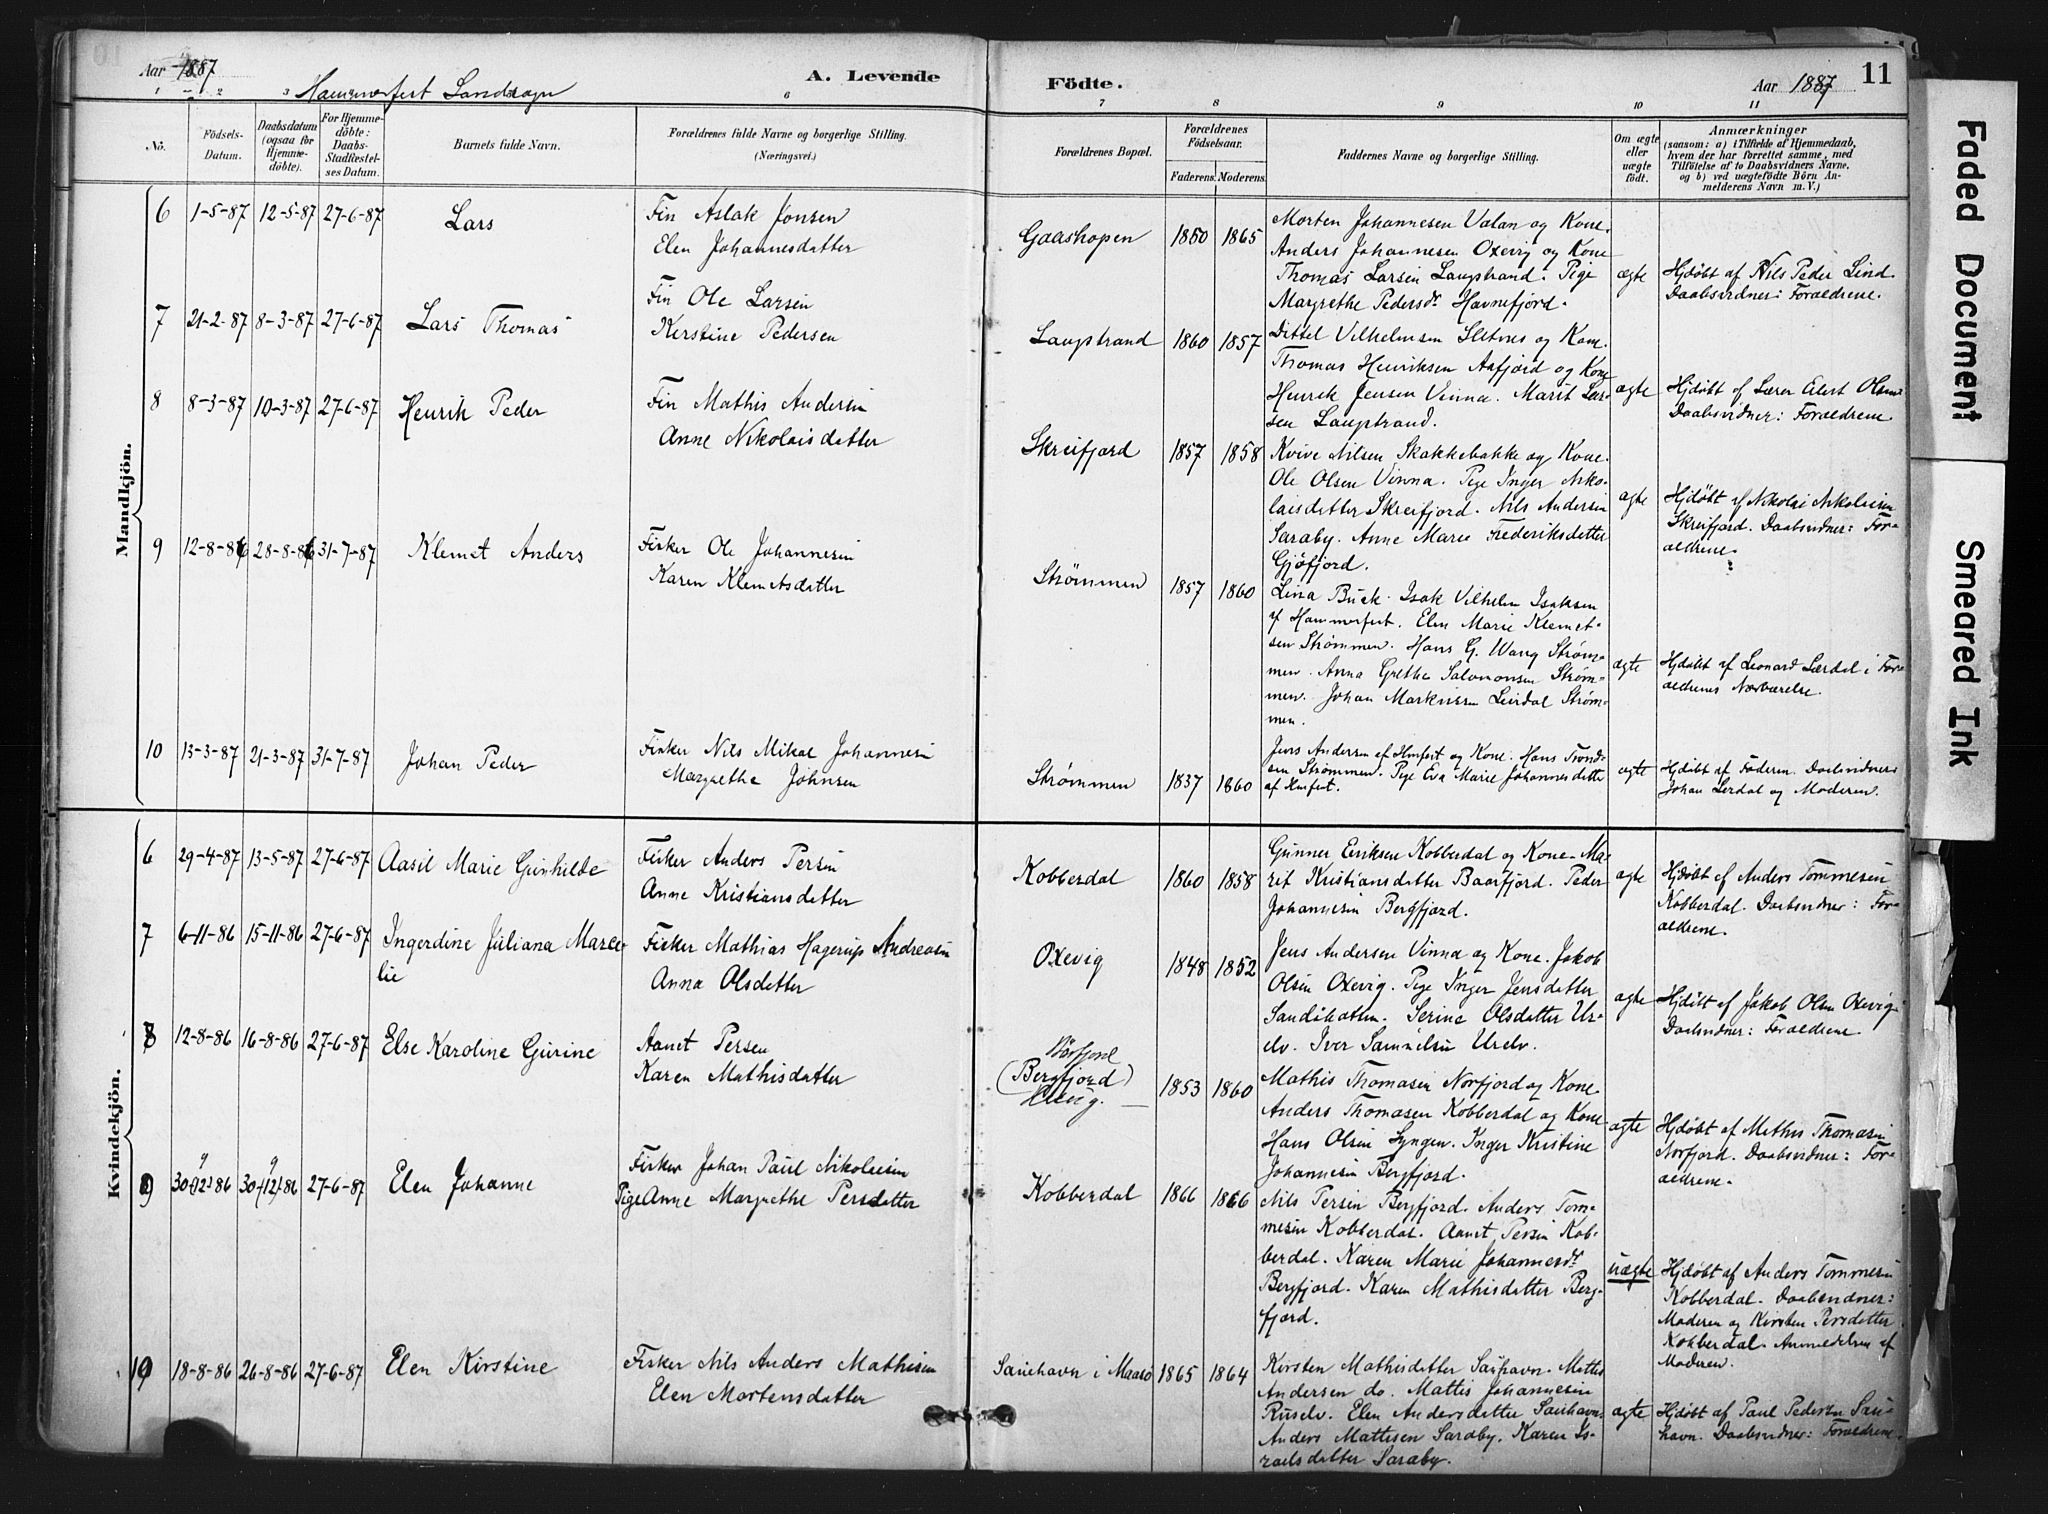 Aar 1887
Hammerfest Landsogn
A. Levende
Födte.
Aar 1887
11
1 2 3 6 7 8 9 10 11
No.
Födsels-
Datum.
Daabsdatum
(ogsaa for
Hjemme-
döbte).
For Hjemme-
döbte:
Daabs-
Stadfæstel-
ses Datum.
Barnets fulde Navn.
Forældrenes fulde Navne og borgerlige Stilling.
(Næringsvei.)
Forældrenes Bopæl.
Forældrenes
Födselsaar.
Faderens. Moderens.
Faddernes Navne og borgerlige Stilling.
Om ægte
eller
uægte
födt.
Anmærkninger
(saasom: a) i Tilfælde af Hjemmedaab,
hvem der har forrettet samme, med
Tilföielse af to Daabsvidners Navne.
og b) ved uægtefödte Börn An-
melderens Navn m. V.)
Mandkjön.
6 1-5-87 12-5-87 27-6-87 Lars
Fin Aslak Jonsen
Elen Johannesdatter
Gaashopen 1850 1865
Morten Johannesen Valan og Kone.
Anders Johannesen Oxevig og Kone
Thomas Larsen Langstrand. Pige
Margrethe Pedersdr Havnefjord.
ægte
Hjdøbt af Nils Peder Lind.
Daabsvidner: Foraeldrene.
7 21-2-87 8-3-87 27-6-87 Lars Thomas
Fin Ole Larsen
Kerstine Pedersen
Langstrand 1860 1857
Dittel Vilhelmsen Sletnes og Kone.
Thomas Henriksen Aafjord og Kone
Henrik Jensen Vinna. Marit Lar-
sen Langstrand.
ægte
Hjdøbt af Lærer Eilert Olsen
Daabsvidner: Foraeldrene
8 8-3-87 10-3-87 27-6-87 Henrik Peder
Fin Mathis Andersen
Anne Nikolaisdatter
Skreifjord 1857 1858
Kvive Nilsen Skakkebakke og Kone.
Ole Olsen Vinna. Pige Inger Niko-
laisdatter Skreifjord. Nils Andersen
Saraby. Anne Marie Frederiksdatter
Gjøfjord.
ægte
Hjdøbt af Nikolai Nikolaisen
Skreifjord. Daabsvidner: For-
aeldrene.
9 12-8-86 28-8-86 31-7-87 Klemet Anders
Fisker Ole Johannesen
Karen Klemetsdatter
Strømmen 1857 1860
Lina Buck. Isak Vilhelm Isaksen
af Hammerfest. Elen Marie Klemet-
sen Strømmen. Hans G. Wang Strøm-
men. Anna Grethe Salomonsen Strøm-
men. Johan Markusen Lerdal Strøm-
men.
ægte
Hjdøbt af Leonard Lærdal i For-
aeldrenes Nærværelse.
10 13-3-87 21-3-87 31-7-87 Johan Peder
Fisker Nils Mikal Johannesen
Margrethe Johnsen
Strømmen 1837 1860
Jens Andersen af Hmfest og Kone. Hans Trond-
sen Strømmen. Pige Eva Marie Johannesdatter
af Hmfest.
ægte
Hjdøbt af Faderen. Daabsvidner:
Johan Lerdal og Moderen.
Kvindekjön.
6 29-4-87 13-5-87 27-6-87 Aasil Marie Gunhilde
Fisker Anders Persen
Anne Kristiansdatter
Kobberdal 1860 1858
Gunner Eriksen Kobberdal og Kone. Ma-
rit Kristiansdatter Baarfjord. Peder
Johannesen Bergfjord.
ægte
Hjdøbt af Anders Tommesen
Kobberdal. Daabsvidner: For-
aeldrene.
7 6-11-86 15-11-86 27-6-87 Ingerdine Juliana Marce-
lie
Fisker Mathias Hagerup Andreasen
Anna Olsdatter
Oxevig 1848 1852
Jens Andersen Vinna og Kone. Jakob
Olsen Oxevig. Pige Inger Jensdatter
Serine Olsdatter Ur-
elv. Iver Samuelsen Urelv.
ægte
Hjdøbt af Jakob Olsen Oxevig.
Daabsvidner: Foraeldrene
8 12-8-86 16-8-86 27-6-87 Else Karoline Gurine
Aanet Persen
Karen Mathisdatter
(Bergfjord) 1853 1860
Mathis Thomasen Norfjord og Kone
Anders Thomasen Kobberdal og Kone
Hans Olsen Lyngen. Inger Kristine
Johannesen Bergfjord.
ægte
Hjdøbt af Mathis Thomasen
Norfjord. Daabsvidner: For-
aeldrene.
9 30-12-86 30-12-86 27-6-87 Elen Johanne
Fisker Johan Paul Nikolaisen
Pige Anne Margrethe Persdatter
Kobberdal 1866 1866
Nils Persen Bergfjord. Anders Tom-
mesen Kobberdal. Aanet Persen Kob-
berdal. Karen Marie Johannesdr
Bergfjord. Karen Mathisdatter Berg-
fjord.
uægte
Hjdøbt af Anders Tommesen
Kobberdal. Daabsvidner:
Moderen og Kirsten Persdatter
Kobberdal. Anmeldelsen af
Moderen.
10 18-8-86 26-8-86 27-6-87 Elen Kirstine
Fisker Nils Anders Mathisen
Elen Mortensdatter
Sauehavn i Maasø 1865 1864
Kirsten Mathisdatter Sauhavn. Mattis
Andersen do. Mattis Johannesen
Ruselv. Elen Andersdatter Sauhavn.
Anders Mattisen Saraby. Karen Is-
raelsdatter Saraby.
ægte
Hjdøbt af Paul Pedersen Sau-
havn. Daabsvidner: Foraeldrene.
Faded Document
Smeared Ink